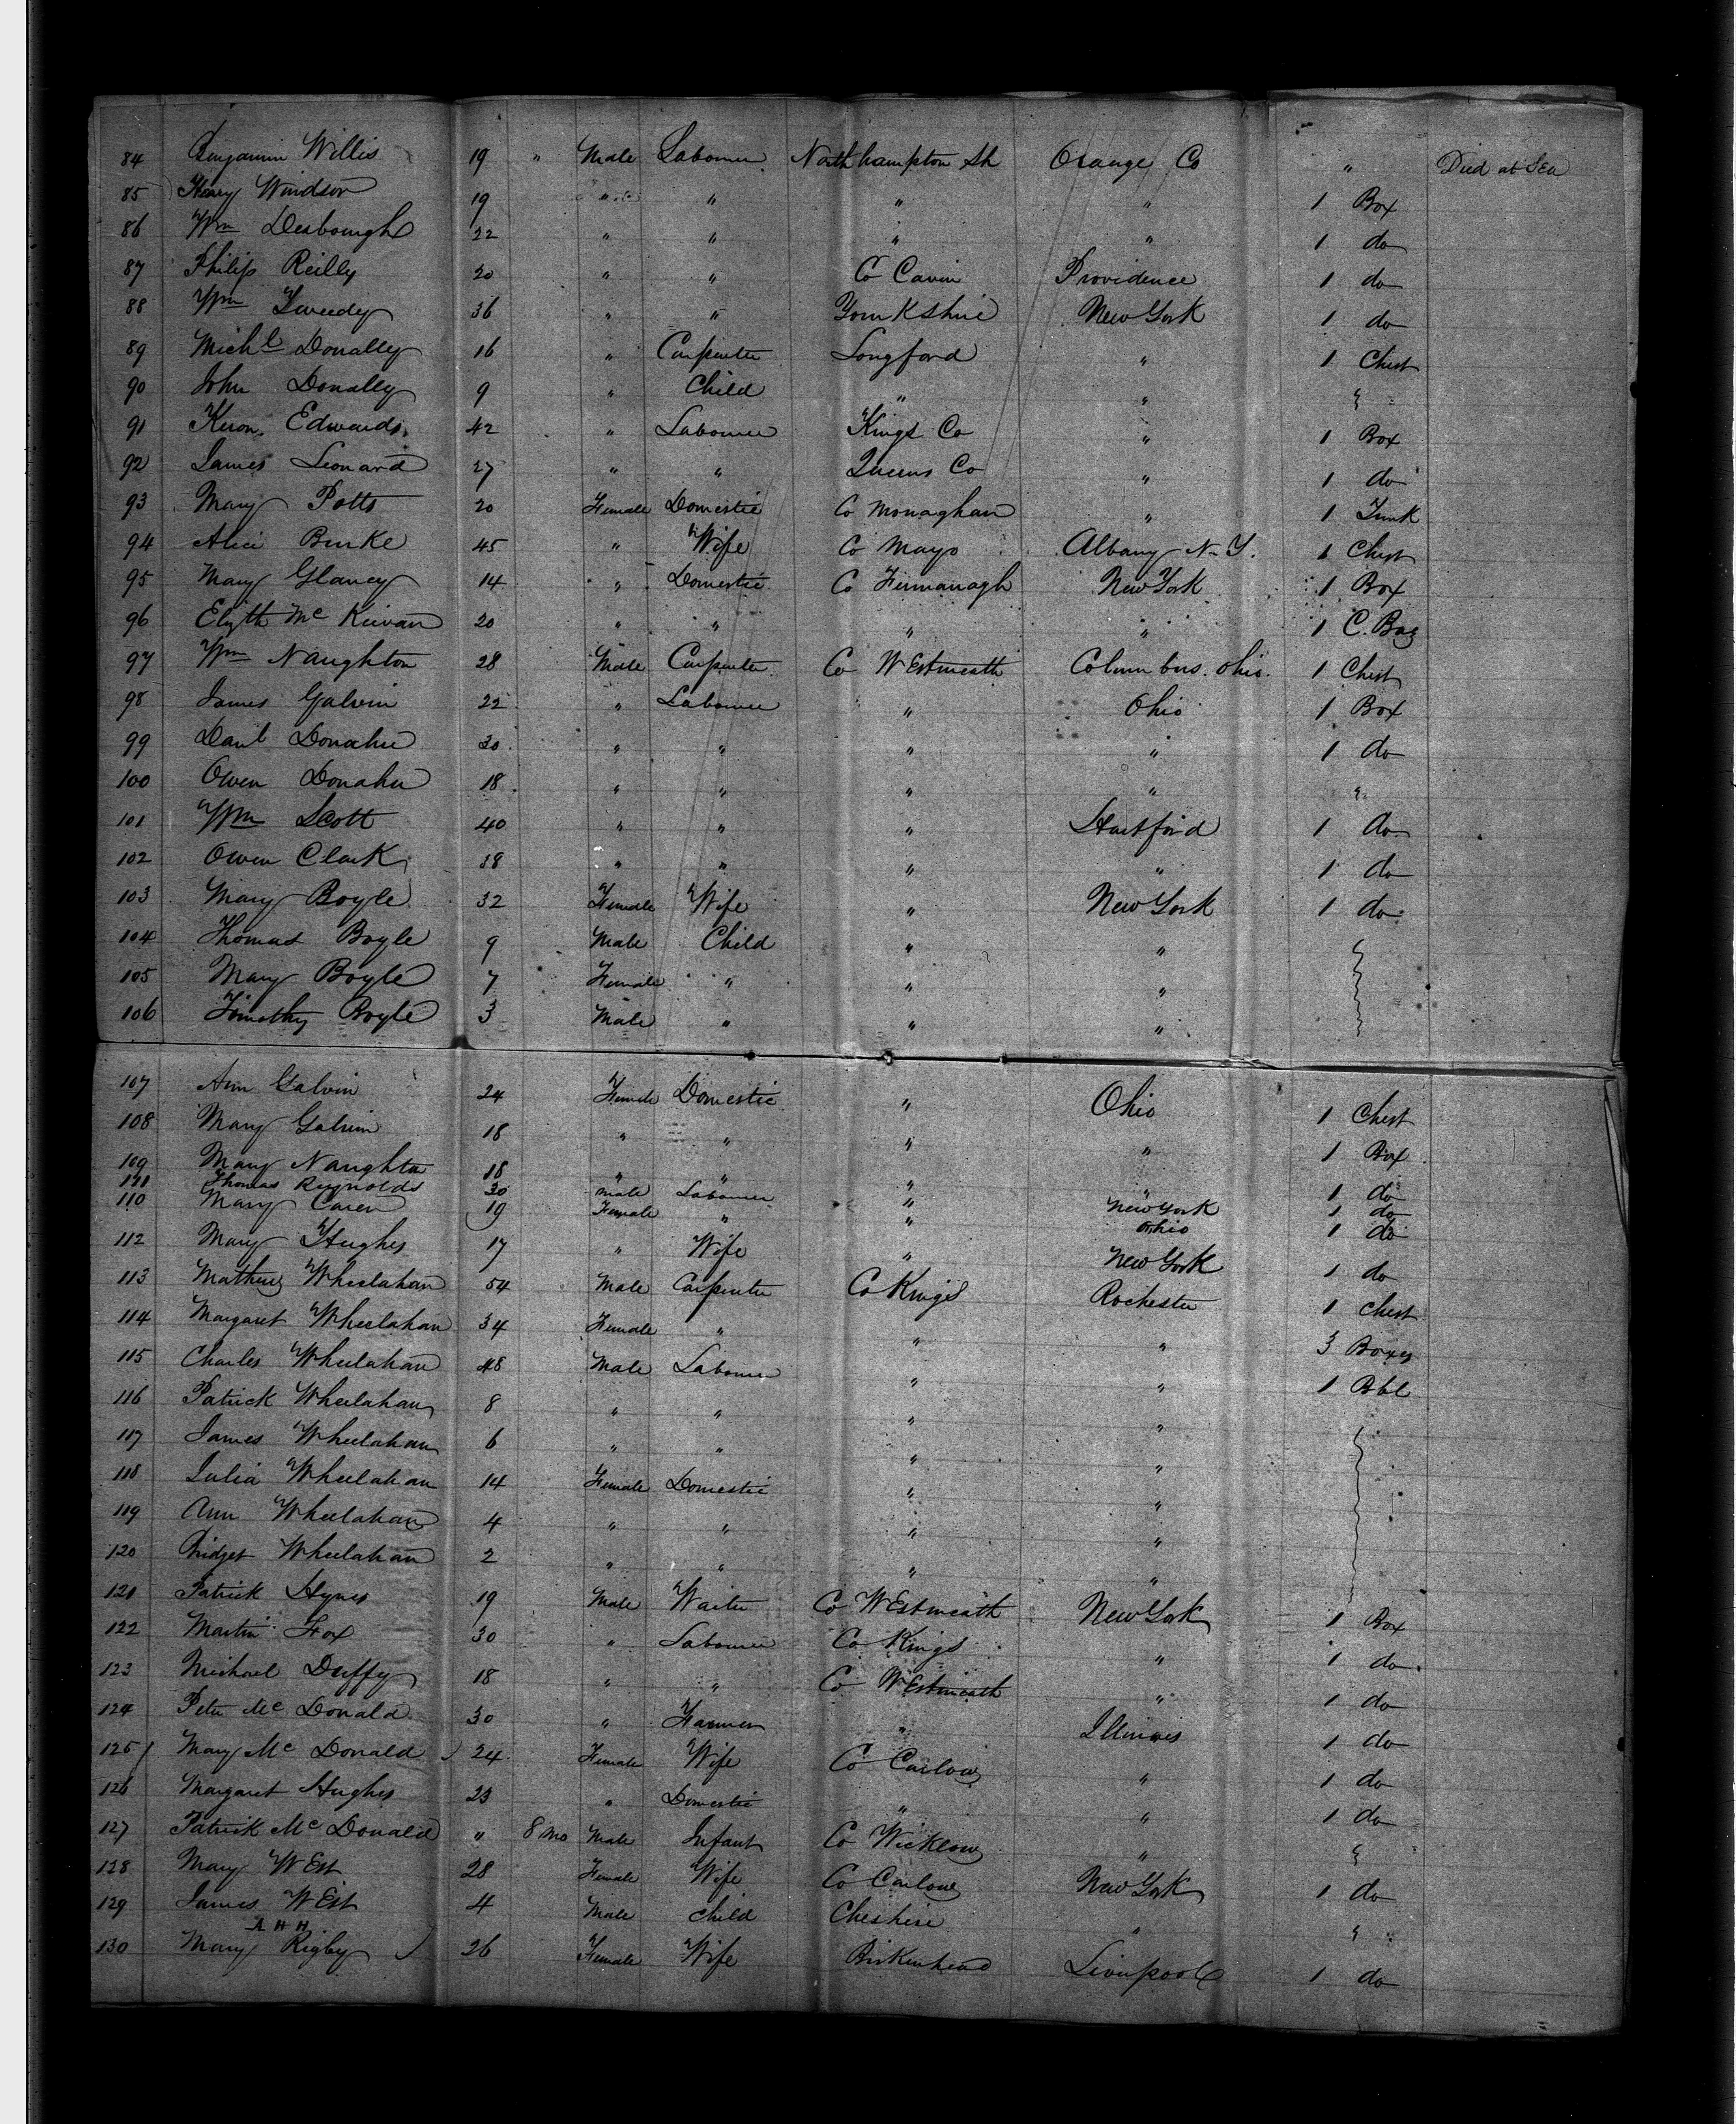 84 Benjamin Willis 19 " Male Labourer Northhampton Sh Orange Co " Died at Sea
85 Henry Windsor 19 " " " " 1 Box
86 Wm Desbough 22 " " " " 1 do
87 Philip Reilly 20 " " Co Cavin Providence 1 do
88 Wm Tweedy 36 " " Yourkshire New York 1 do
89 Michl Donally 16 " Carpenter Longford " 1 Chest
90 John Donally 9 " Child " "
91 Keron Edwards 42 " Labourer Kings Co " 1 Box
92 James Leonard 27 " " Queens Co " 1 do
93 Mary Potts 20 Female Domestic Co Monaghan " 1 Trunk
94 Alice Burke 45 " Wife Co Mayo Albany N. Y. 1 Chest
95 Mary Glancy 14 " Domestic Co Firmanagh New York 1 Box
96 Elizth Mc Kiivan 20 " " " " 1 C. Bag
97 Wm Naughton 28 Male Carpenter Co WEstmeath Columbus. Ohio. 1 Chest
98 James Galvin 22 " Labourer " Ohio 1 Box
99 Danl Donahu 30 " " " " 1 do
100 Owen Donahu 18 " " " "
101 Wm Scott 40 " " " Hartford 1 do
102 Owen Clark 38 " " " " 1 do
103 Mary Boyle 32 Female Wife " New York 1 do
104 Thomas Boyle 9 Male Child " "
105 Mary Boyle 7 Female " " "
106 Timothy Boyle 3 Male " " "
107 Ann Galvin 24 Female Domestic " Ohio 1 Chest
108 Mary Galvin 18 " " " " 1 Box
109 Mary Naughton 18 " " " " 1 do
111 Thomas Reynolds 30 Male Labourer " New York 1 do
110 Mary Caren 19 Female " " Ohio 1 do
112 Mary Hughes 17 " Wife " New York 1 do
113 Mathew Wheelahan 54 Male Carpenter Co Kings Rochester 1 Chest
114 Margaret Wheelahan 34 Female " " " 3 Boxes
115 Charles Wheelahan 48 Male Labourer " " 1 Bbl
116 Patrick Wheelahan 8 " " " "
117 James Wheelahan 6 " " " "
118 Julia Wheelahan 14 Female Domestic " "
119 Ann Wheelahan 4 " " " "
120 Bridget Wheelahan 2 " " " "
121 Patrick Hynes 19 Male Waiter Co WEstmeath New York 1 Box
122 Martin Fox 30 " Labourer Co Kings " 1 do
123 Michael Duffy 18 " " Co WEstmeath " 1 do
124 Peter Mc Donald 30 " Farmer " Illinois 1 do
125 Mary Mc Donald 24 Female Wife Co Carlow " 1 do
126 Margaret Hughes 23 " Domestic " " 1 do
127 Patrick Mc Donald " 8 mo Male Infant Co Wicklow "
128 Mary WEst 28 Female Wife Co Carlow New York 1 do
129 James WEst 4 Male Child Cheshire "
130 Mary Ann Rigby 26 Female Wife Birkenhead Liverpool 1 do